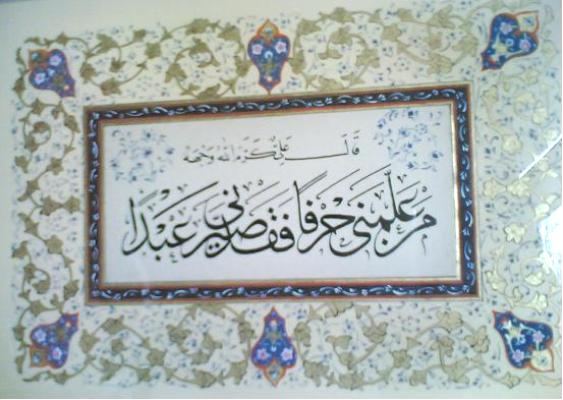 قَالَ عَلِي كَرَّمَ اللهُ وَجْهَهُ
مَنْ عَلَّمَنِي حَرْفًا فَقَدْ صَيَّرَنِي عَبْدًا